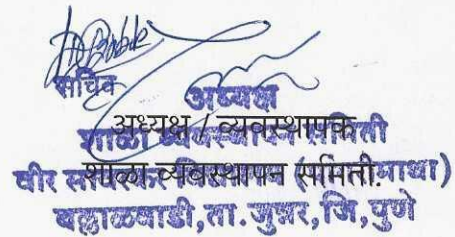 सचिव
अध्यक्ष
अध्यक्ष / व्यवस्थापक
शाळा व्यवस्थापन समिती
शाळा व्यवस्थापन (समिती.
वीर माथा)
बल्लाळवाडी,ता.जुन्नर,जि,पुणे